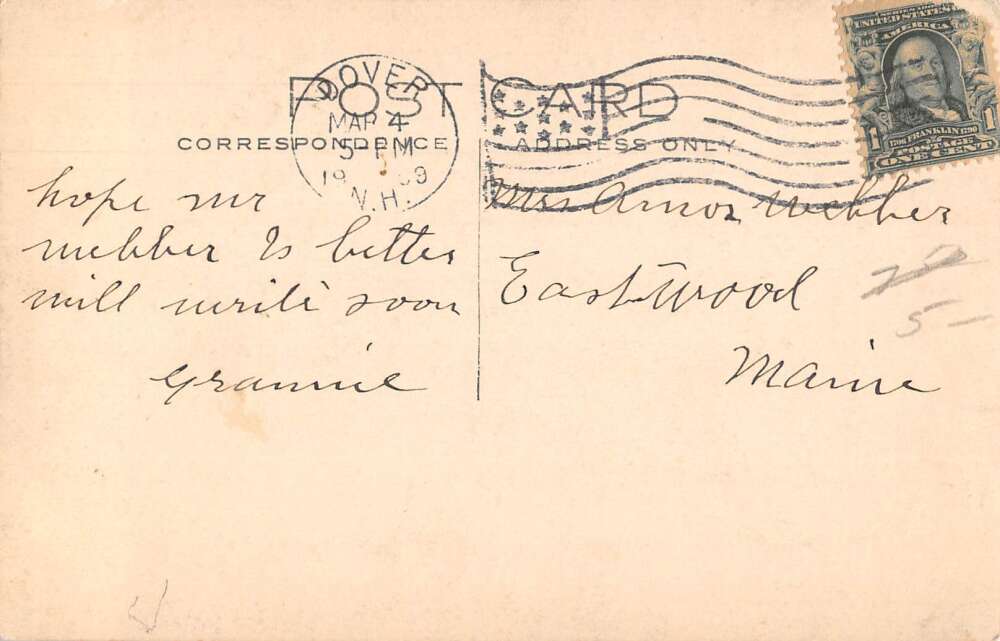 POST CARD
CORRESPONDENCE
ADDRESS ONLY
DOVER
MAR 4
5 PM
1909
N.H.
UNITED STATES OF
AMERICA
1706 FRANKLIN 1790
POSTAGE
1 ONE CENT 1
hope mr
webber Is better
will write soon
Grannie
Mrs Amos Webber
Eastwood
Maine
5 -